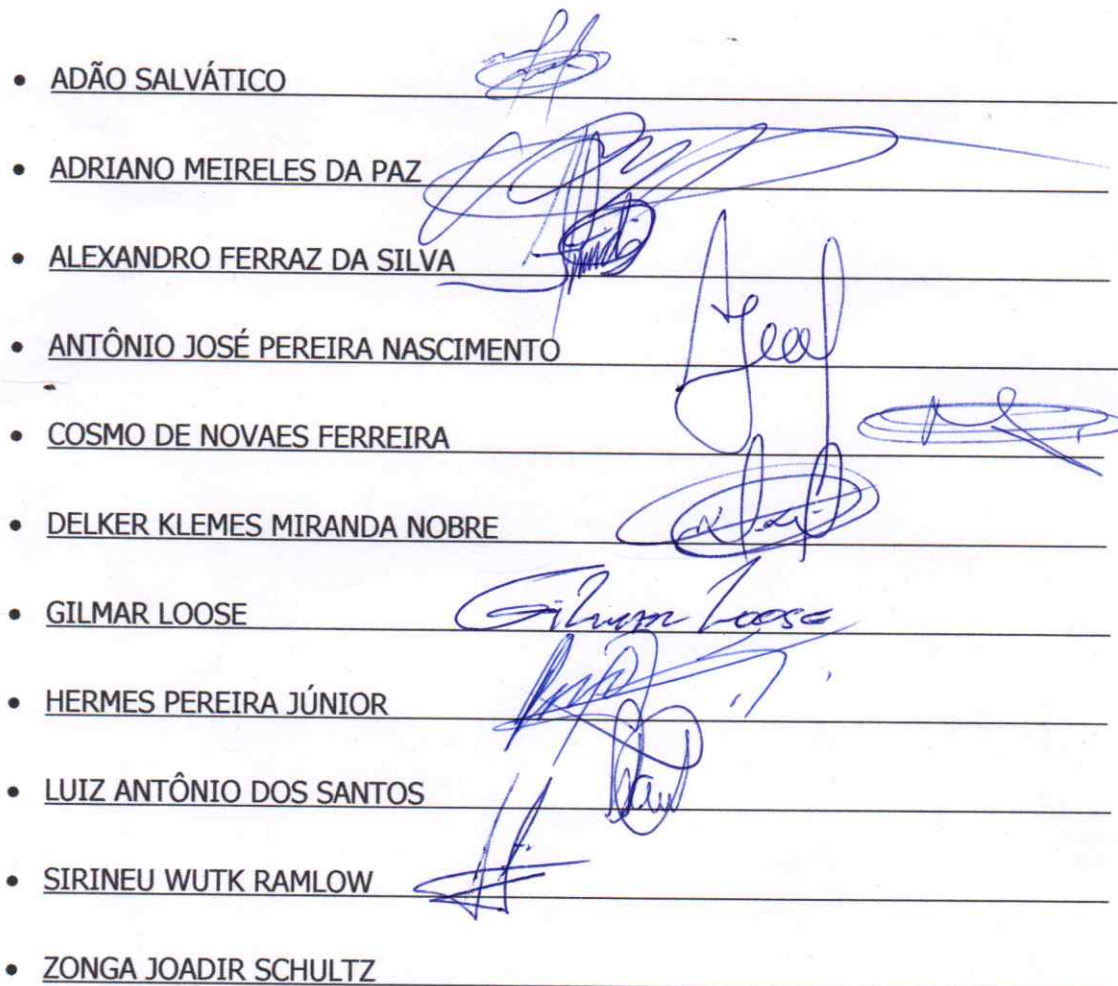 • ADÃO SALVÁTICO
• ADRIANO MEIRELES DA PAZ
• ALEXANDRO FERRAZ DA SILVA
• ANTÔNIO JOSÉ PEREIRA NASCIMENTO
• COSMO DE NOVAES FERREIRA
• DELKER KLEMES MIRANDA NOBRE
• GILMAR LOOSE Gilmar Loose
• HERMES PEREIRA JÚNIOR
• LUIZ ANTÔNIO DOS SANTOS
• SIRINEU WUTK RAMLOW
• ZONGA JOADIR SCHULTZ